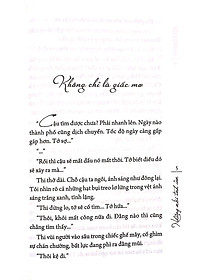 Không chỉ là giấc mơ
"Cậu tìm được chưa? Phải nhanh lên. Ngày nào
thành phố cũng dịch chuyển. Tốc độ ngày càng gấp
gáp hơn. Tớ sợ..."
"..."
"Rồi thì cậu sẽ mất dấu nó mất thôi. Tớ biết điều đó
sẽ xảy ra mà..."
Thị thở dài. Chỗ cậu ta ngồi, ánh sáng như đông lại.
Tôi nhìn rõ cả những hạt bụi treo lơ lửng trong vệt ánh
sáng trắng xanh, tĩnh lặng.
"Thì đừng lo, tớ sẽ cố tìm... Tớ hứa..."
"Thôi, khỏi mất công nữa đi. Đằng nào thì cũng
chẳng tìm thấy..."
Thị vùi người vào sâu trong chiếc ghế mây, cố ghìm
sự chán chường, bất lực đang phì ra đằng mũi.
"Thôi kệ đi."
5